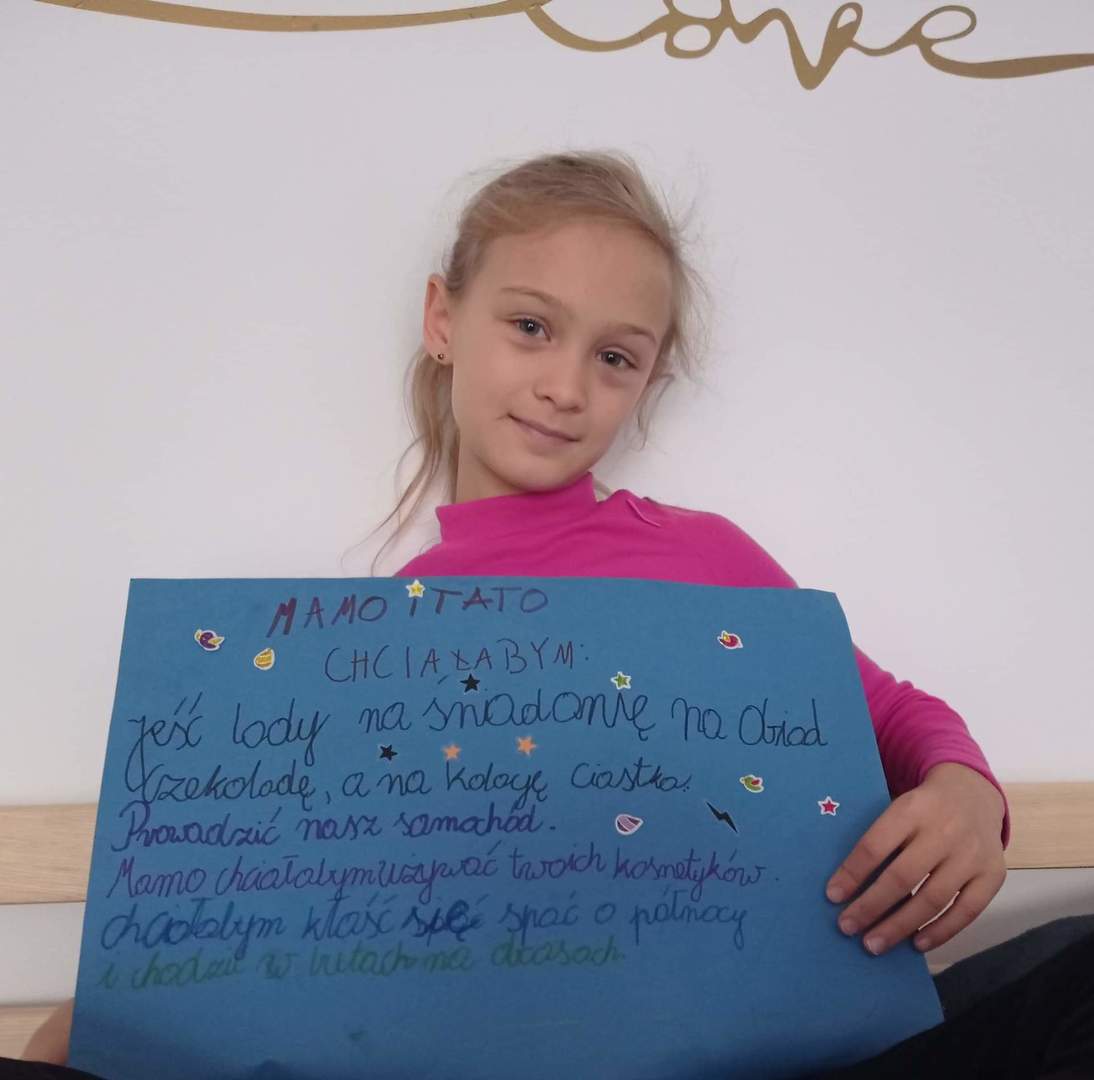 Love
MAMO i TATO
CHCIAŁABYM:
jeść lody na śniadanię na Obiad
Czekoladę, a na kolację Ciastka.
Prowadzić nasz samochód.
Mamo chciałabym używać twoich kosmetyków.
chciałabym kłaść się spać o północy
i chodzić w butach na obcasach.